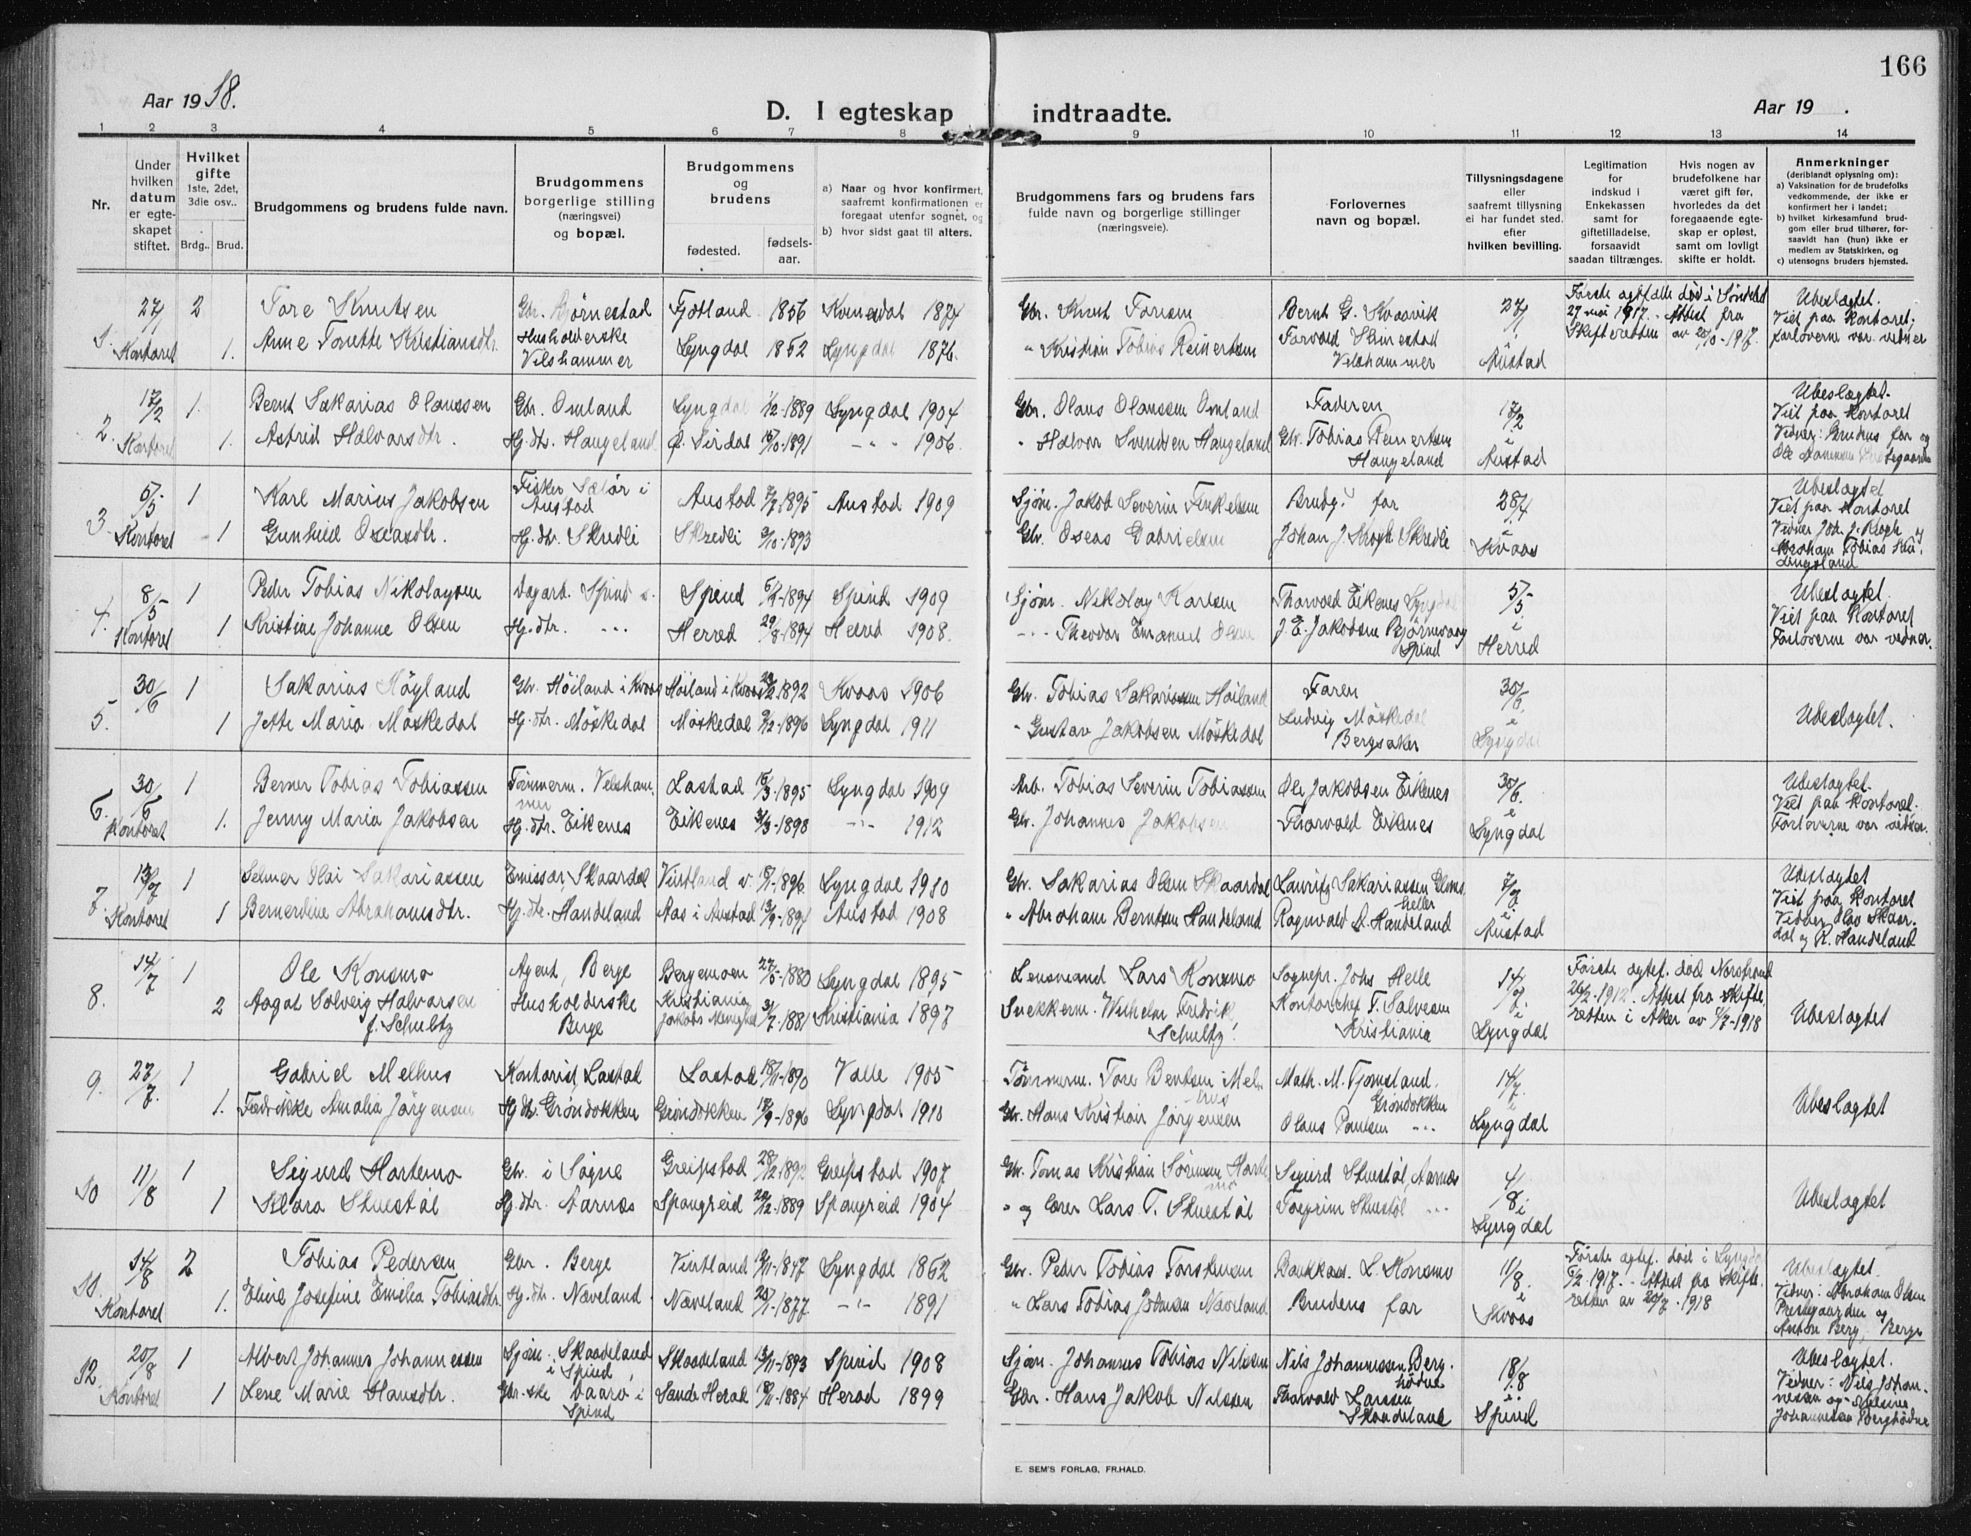 166
Aar 1918.
D. I egteskap indtraadte.
Aar 19 .
1 2 3 4 5 6 7 8 9 10 11 12 13 14
Nr.
Under hvilken datum er egteskapet stiftet.
Hvilket gifte 1ste, 2det, 3die osv..
Brdg.. Brud.
Brudgommens og brudens fulde navn.
Brudgommens borgerlige stilling (næringsvei) og bopæl.
Brudgommens og brudens
fødested. fødsels-aar.
a) Naar og hvor konfirmert, saafremt konfirmationen er foregaat utenfor sognet, og
b) hvor sidst gaat til alters.
Brudgommens fars og brudens fars fulde navn og borgerlige stillinger (næringsveie).
Forlovernes navn og bopæl.
Tillysningsdagene eller saafremt tillysning ei har fundet sted. efter hvilken bevilling.
Legitimation for indskud i Enkekassen samt for giftetilladelse, forsaavidt saadan tiltrænges.
Hvis nogen av brudefolkene har været gift før, hvorledes da det foregaaende egteskap er opløst, samt om lovligt skifte er holdt.
Anmerkninger (deriblandt oplysning om):
a) Vaksination for de brudefolks vedkommende, der ikke er konfirmert her i landet;
b) hvilket kirkesamfund brudgom eller brud tilhører, forsaavidt han (hun) ikke er medlem av Statskirken, og
c) utensogns bruders hjemsted.
1. 27/1 Kontoret 2 Tore Knutsen Gbr. Bjørnestad Fjotland 1856 Kvinesdal 1874 Gbr. Knut Torsen Bernt G. Kvaavik 27/1
1. Anne Tonette Kristiansdtr. Husholderske Velshammer Lyngdal 1862 Lyngdal 1876. " Kristian Tobias Reinertsen Torvald Skimestad Velshammer Austad
Første egtefælle død i Søndeled 27 mai 1917. - Attest fra Skifteretten av 20/10-1917.
Ubeslægtet. Viet paa Kontoret, forloverne var vidner
2. 17/2 Kontoret 1. Bernt Sakarias Olaussen Gbr. Omland Lyngdal 1/12-1889 Lyngdal 1904 Gbr. Olaus Olaussen Omland Faderen 17/2
1. Astrid Halvorsdtr. Hj. dtr. Haugeland Ø. Sirdal 15/10-1891 - " - 1906. " Halvor Svendsen Haugeland Gbr. Tobias Reinertsen Haugeland i Austad
Ubeslægtet. Viet paa Kontoret Vidner: Brudens far og Ole
3. 5/5 Kontoret 1 Karl Marius Jakobsen Fisker Sælør i Austad Austad 7/7-1895 Austad 1909 Sjøm. Jakob Severin Finkelsen Brudg. far 28/4
1 Gunhild Oseasdtr. Hj. dtr. Skredli Skredli 9/10-1893 Gbr. Oseas Gabrielsen Johan J. Krogh Skredli i Kvaas
Ubeslægtet Viet paa Kontoret Vidner Joh. J. Krogh og Abraham Tobias
4. 8/5 Kontoret 1 Peder Tobias Nikolaysen Dagarb. Spind Spind 6/2-1894 Spind 1909 Sjøm. Nikolay Karlsen Thorvald Eikenes Lyngdal 5/5
1 Kristine Johanne Olsen Hj. dtr. - " - Herred 29/8-1894 Herred 1908. - " - Theodor Emanuel Olsen J. E. Jakobsen Bjørnevaag Spind i Herred
Ubeslægtet. Viet paa Kontoret Forloverne var vidner.
5. 30/6 1 Sakarias Høyland Gbr. Høiland i Kvaas Høiland i Kvaas 1892 Kvaas 1906 Gbr. Tobias Sakariassen Høiland Faren 30/6
1 Jette Maria Møskedal Hj. dtr. Møskedal Møskedal 9/12-1896 Lyngdal 1911 " Gustav Jakobsen Møskedal Ludvig Møskedal Bergsaker i Lyngdal
Ubeslægtet.
6. 30/6 Kontoret 1 Berner Tobias Tobiassen Tømmerm. Velshammer Lastad 15/3-1895 Lyngdal 1909 Arb. Tobias Severin Tobiassen Ole Jakobsen Eikenes 30/6.
1. Jenny Maria Jakobsen Hj. dtr. Eikenes Eikenes 31/3-1898 - " - 1912 Gbr. Johannes Jakobsen Thorvald Eikenes i Lyngdal
Ubeslægtet. Viet paa Kontoret. Forloverne var vidner.
7. 13/7 Kontoret 1 Selmer Olai Sakariassen Emissær, Skaardal Virtland 1896. Lyngdal 1910 Gbr. Sakarias Olsen Skaardal Lauritz Sakariassen 7/7
1 Berdine Abrahamsdtr. Hj. dtr. Handeland Aas i Austad 13/9-1894 Austad 1908 " Abraham Berntsen Handeland Ragnvald A. Handeland i Austad
Ubeslægtet Viet paa Kontoret Vidner Olav Skaardal og R. Handeland
8. 14/7 1 Ole Konsmo Agent, Berge Bergemoen 27/5-1880 Lyngdal 1895 Lensmand Lars Konsmo Sognepr. Johs Helle 14/7
2 Aagat Solveig Halvorsen f. Schultz Husholderske Berge Kristiania Jakobs Menighed 31/7-1881 Kristiania 1897 Snekkerm. Wilhelm Fredrik Schultz. Kontorchef T. Salvesen Kristiania i Lyngdal
Første egtef. død Norstrand 26/2-1912. Attest fra Skifteretten i Aker av 4/7-1918
Ubeslægtet
9. 27/7. 1 Gabriel Melhus Kontorist Lastad Lastad 18/11-1890 Valle 1905 Tømmerm. Tore Bentsen Melhus Math. M. Tjomsland. Grøndokken 14/7.
1. Fredrikke Amalia Jørgensen Hj. dtr. Grøndokken Grøndokken 17/9-1896 Lyngdal 1910 Gbr. Hans Kristian Jørgensen Olaus Paulsen - " - i Lyngdal
Ubeslægtet
10 11/8 1 Sigurd Hortemo Gbr. i Søgne Greipstad 28/12-1892 Greipstad 1907 Gbr. Tomas Kristian Sørensen Hortemo Sigurd Stuestøl, Aarnæs 4/8
1 Klara Stuestøl Hj. dtr. Aarnæs Spangreid 29/12-1889 Spangreid 1904 " og lærer Lars T. Stuestøl Torgrim Stuestøl - " - i Lyngdal
Ubeslægtet
11. 14/8 Kontoret 2 Tobias Pedersen Gbr. Berge Virtland 9/11-1847 Lyngdal 1862 Gbr. Peder Tobias Torstensen Bankkas. L. Konsmo 11/8.
1. Eline Josefine Emilia Tobiasdtr. Hj. dtr. Næveland Næveland 20/1-1877 - " - 1891 " Lars Tobias Johnsen Næveland Brudens far i Kvaas
Første egtef. død i Lyngdal 5/2 1917. - Attest fra Skifteretten av 20/7-1918
Ubeslægtet. Vidner: Abraham Olsen Prestgaarden og Anton Berg, Berge
12. 20/8 Kontoret 1 Albert Johannes Johannessen Sjøm. Skaadeland i Spind Skaadeland 13/11-1893 Spind 1908 Sjøm. Johannes Tobias Nilssen Nils Johannessen Berghødne 18/8
1 Lene Marie Hansdtr. Gbr.ske Vaarø i Spind Sande Herad 18/11-1884 Herad 1899 Gbr. Hans Jakob Nilssen Thorvald Larssen Skaadeland i Spind
Ubeslægtet. Vidner: Nils Johannessen og Johannessen Berghødne
E. SEM'S FORLAG, FR.HALD.